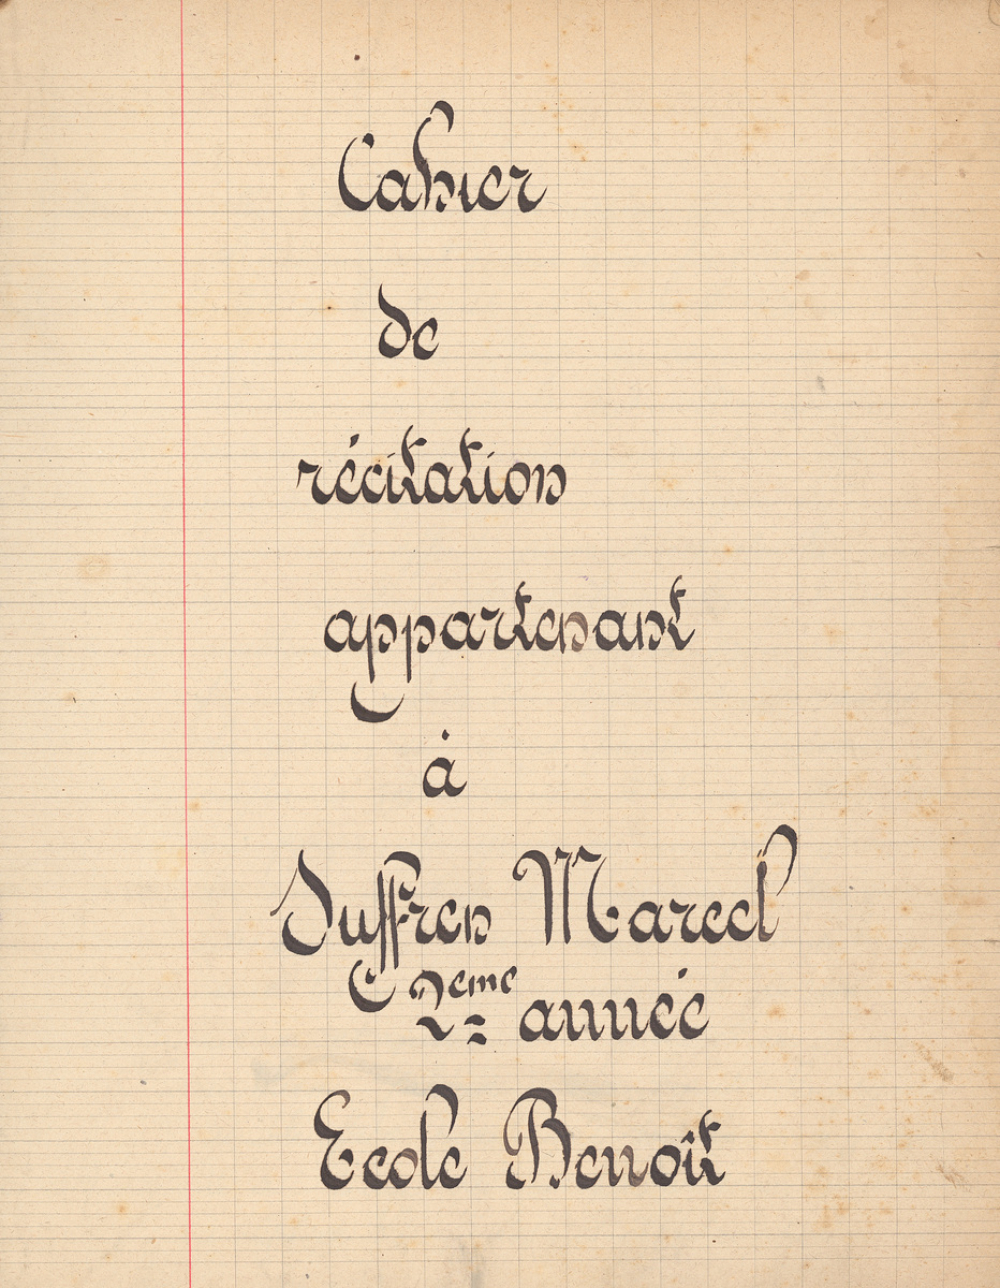 Cahier
de
récitation
appartenant
à
Suffren Marcel
2ème année
Ecole Benoît